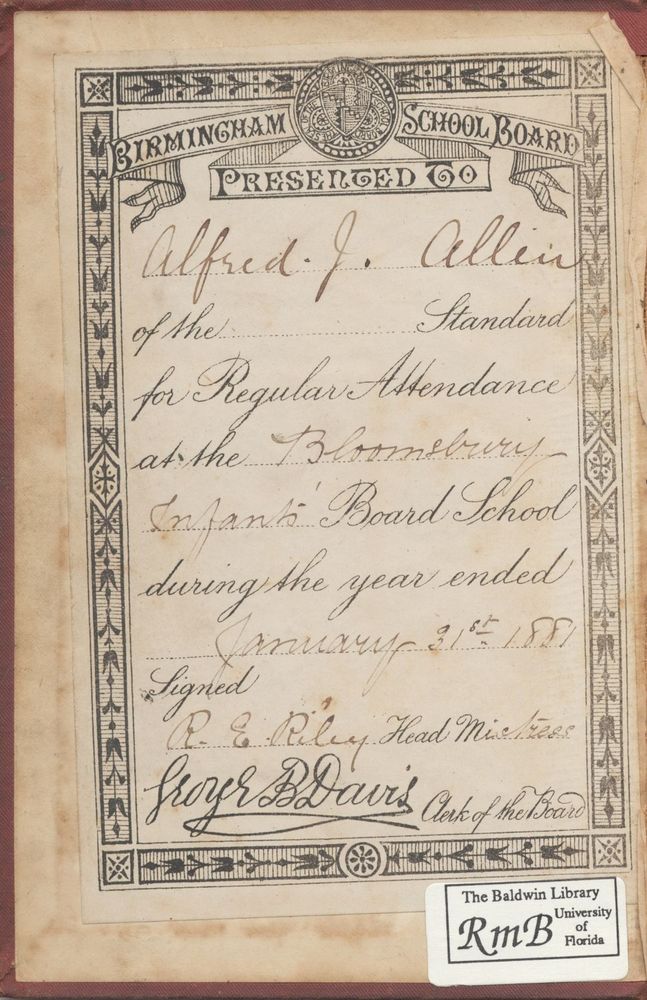 BIRMINGHAM SCHOOL BOARD
PRESENTED TO
Alfred. J. Allin
of the Standard
for Regular Attendance
at the Bloomsbury
Infants' Board School
during the year ended
January 31st 1881
Signed
R. E. Riley Head Mistress
B Davis Clerk of the Board
The Baldwin Library
RmB University
of
Florida